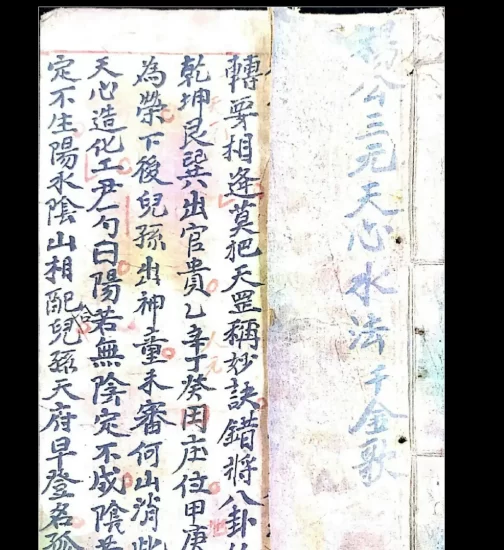 楊公三元天心水法千金歌
轉要相逢莫把天罡稱妙訣錯將八卦
乾坤艮巽出官貴乙辛丁癸田庄位甲庚
為榮下後兒孫出神童未審何山消此
天心造化工尹一勺曰陽若無陰定不成陰若
定不生陽水陰山相配合兒孫天府早登名孤
人元